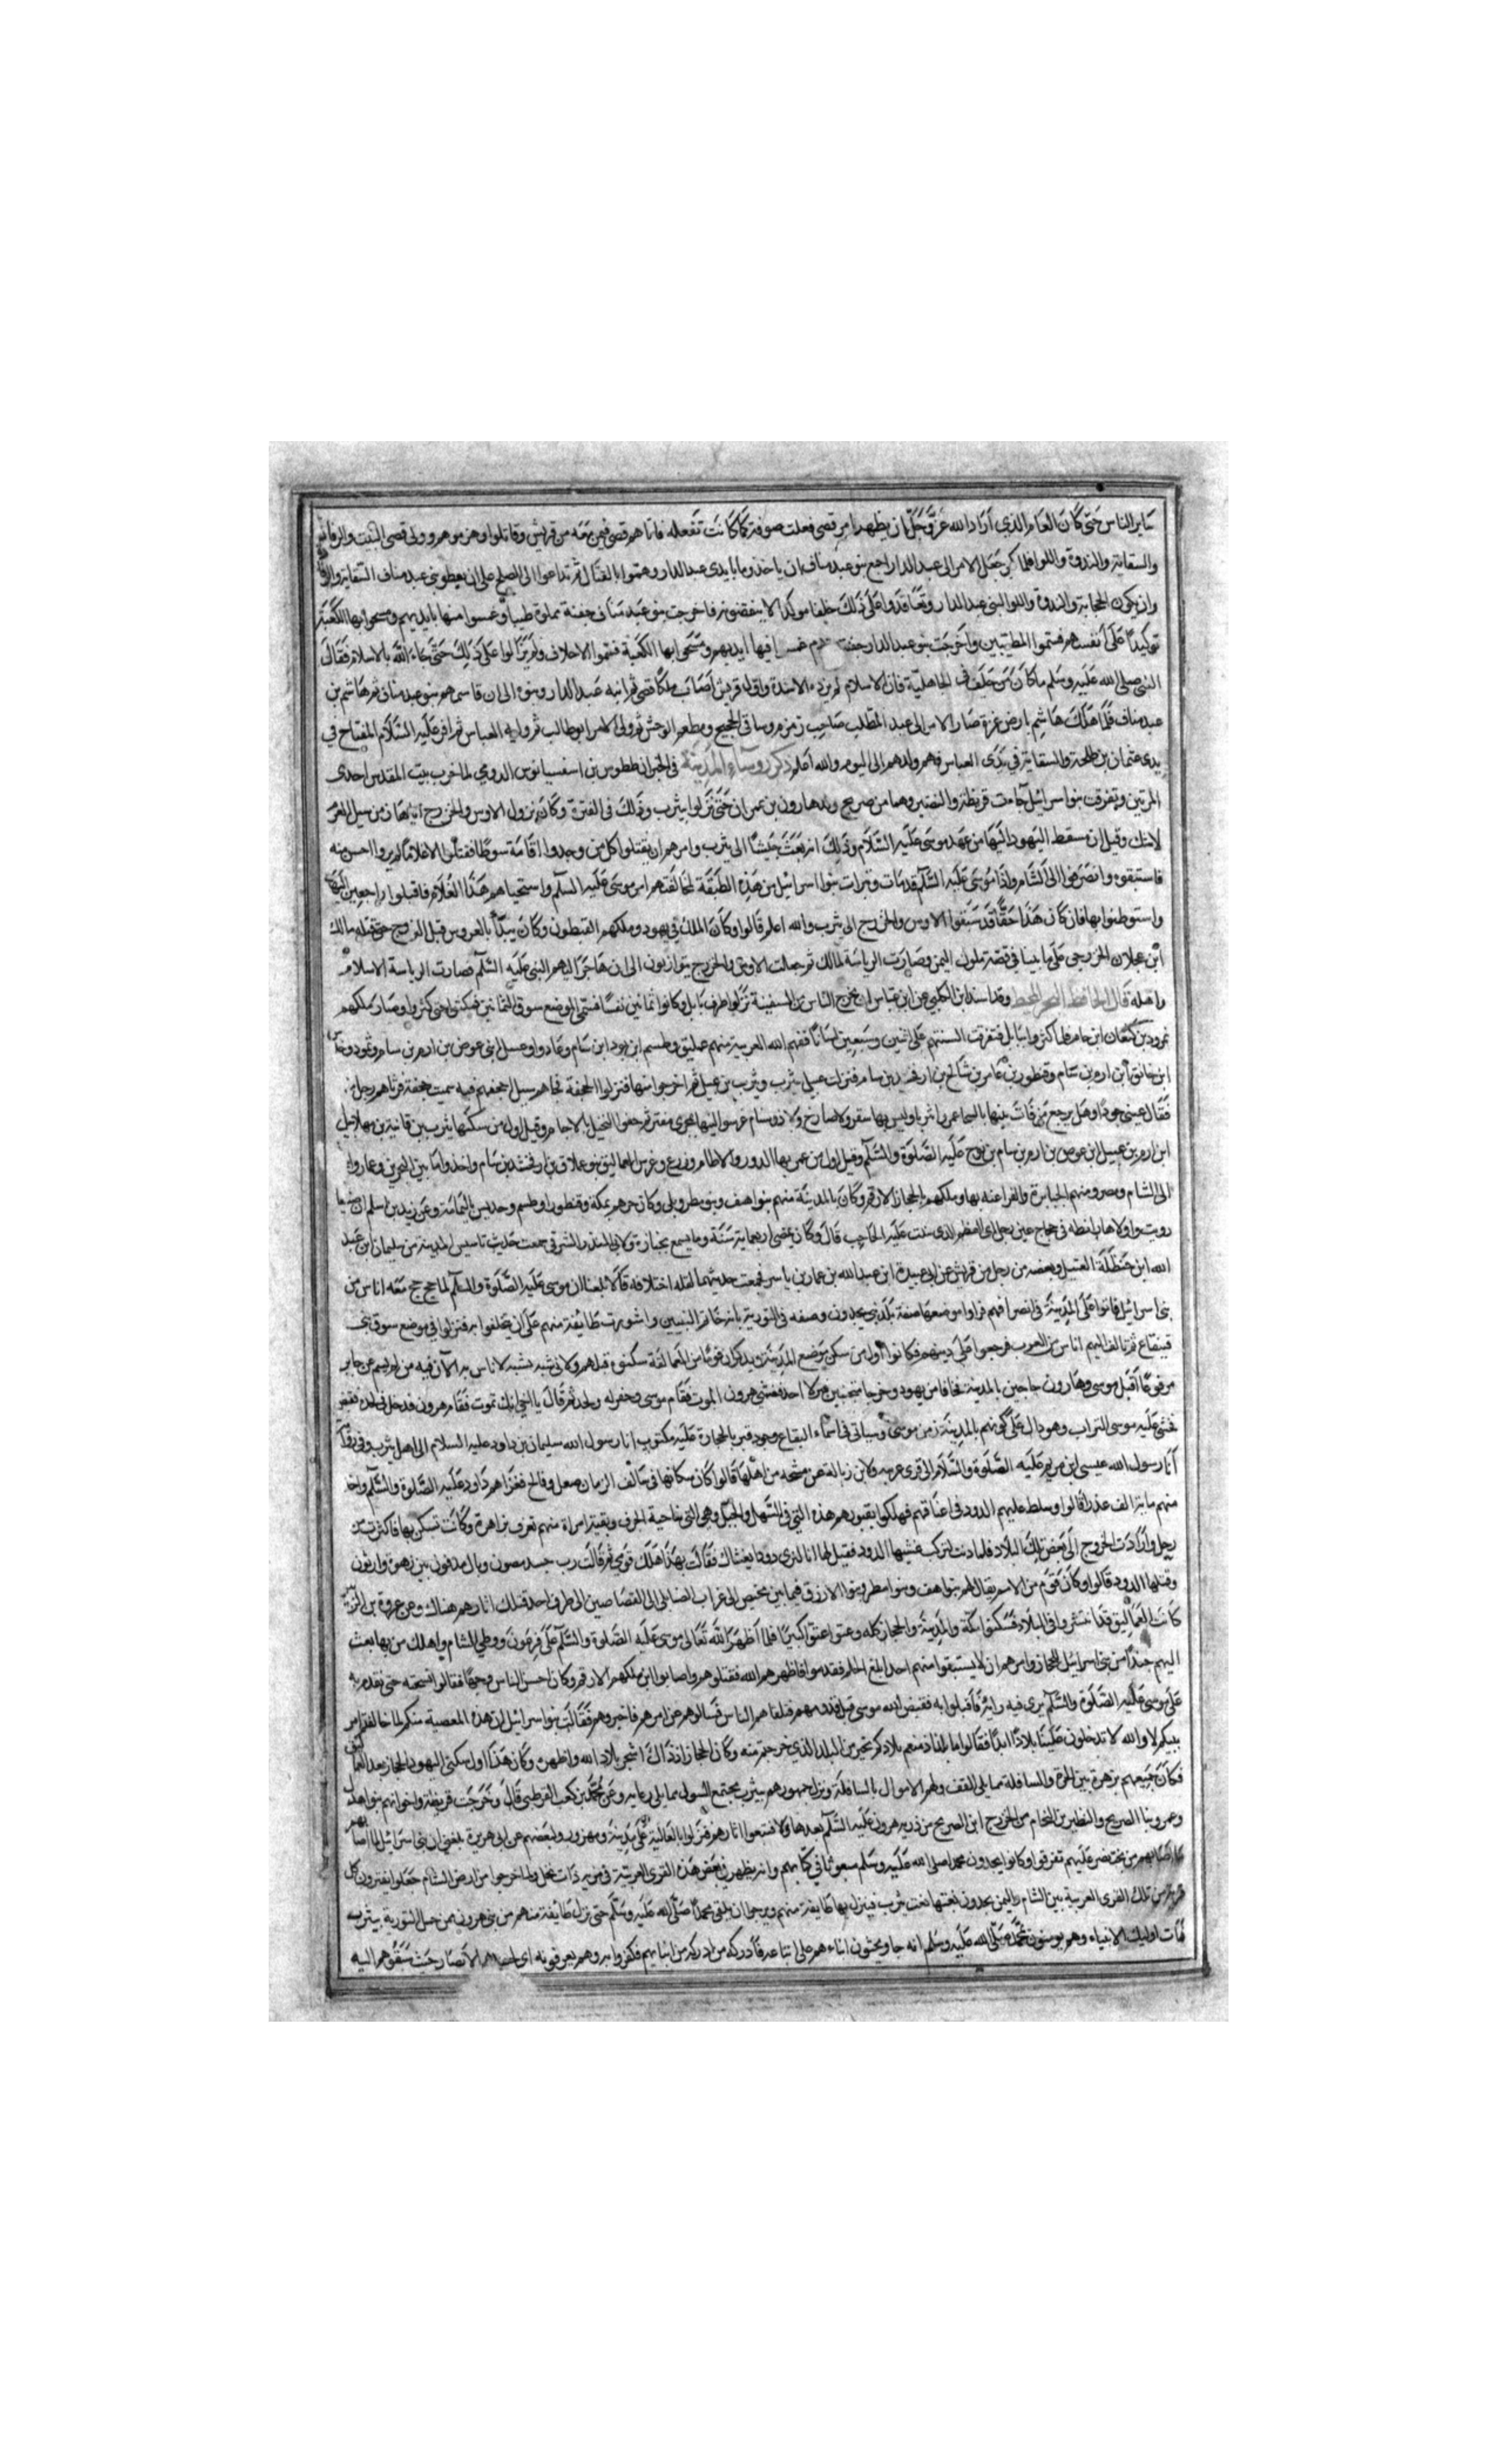 سائر الناس حتى كان العام الذي أراد الله عز وجل ان يظهر امر قصى فعلت صوفة كما كانت تفعله فاتاهم قصى فيمن معه من قريش وقاتلوا وهزموهم وولى قصى البيت والرفادة
والسقاية والندوة واللوا فلما كبر جعل الامر الى عبد الدار اجمع بنو عبد مناف ان ياخذوا ما بايدى عبد الدار وهموا بالقتال ثم تداعوا الى الصلح على ان يعطو بنى عبد مناف السقاية والرفادة
وان يكون الحجابة والندوة واللوا لبنى عبد الدار وتعاقدوا على ذلك حلفا موكدا لا ينقضونه فاخرجت بنو عبد مناف جفنة مملوة طيبا وغمسوا منها بايديهم ومسحوا بها الكعبة
توكيدا على أنفسهم فسموا المطيبين واخرجت بنو عبد الدار جفنة دم فيها ايديهم ومسحوا بها الكعبة فسموا الاحلاف ولم يزالوا على ذلك حتى جاء الله بالاسلام فقال
النبي صلى الله عليه وسلم ما كان من حلف في الجاهلية فان الاسلام لم يزده الا شدة واول قريش أصاب ملكا قصى ثم ابنه عبد الدار وبنوه الى ان قاسمهم بنو عبد مناف ثم هاشم بن
عبد مناف فلما هلك هاشم بارض غزة صار الامر الى عبد المطلب صاحب زمزم وساقى الحجيج ومطعم الوحش ثم ولى الامر ابو طالب ثم العباس ثم اقر عليه السلام المفتاح في
يدى عثمان بن طلحة والسقاية في يدى العباس فهم ولدهم الى اليوم والله اعلم ذكر روساء المدينة في الخبر ان ططوس بن اسفسيانوس الرومي لما خرب بيت المقدس احدى
المرتين وتفرقت بنو اسرائيل جاءت قريظة والنضير وهما من صريح ولد هارون بن عمران حتى نزلوا بيثرب وذلك في الفترة وكان نزول الاوس والخزرج من سيل العرم
وقيل ان سقط اليهود اليها من عهد موسى عليه السلام وذلك انه بعث جيشا الى يثرب وامرهم ان يقتلوا كل من وجدوا قامة سوطا فقتلوا الا غلاما لم يروا احسن منه
فاستبقوه وانصرفوا الى الشام واذا موسى عليه السلام قد مات وتبرات بنوا اسرائيل من هذه الطبقة لمخالفتهم امر موسى عليه السلام واستحياهم هذا الغلام فاقبلوا راجعين اليها
واستوطنوا بها فان كان هذا حقا قد سبقوا الاوس والخزرج الى يثرب والله اعلم قالوا وكان الملك في يهود وملكهم القيطون وكان يبدأ بالعروس قبل الزوج حتى قتله مالك
ابن عجلان الخزرجى على ما بينا في قصة ملوك اليمن وصارت الرياسة لمالك ثم جعلت الاوس والخزرج يتوازنون الى ان هاجر اليهم النبى عليه السلام فصارت الرياسة الاسلام
واهله قال الحافظ وقد اسند ابن الكلبي عن ابن عباس ان مخرج الناس من السفينة نزلوا طرف بابل وكانوا ثمانين نفسا فسمى الموضع سوق الثمانين فمكثوا حتى كثروا وصار ملكهم
نمرود بن كنعان ابن حام فلما كثروا ببابل تفرقت السنتهم على اثنين وسبعين لسانا ففهم الله العربية منهم عمليق وطسم ابن لود ابن سام وعادا وعبيل ابنى عوص بن ارم بن سام وثمود
ابن ارم بن سام وقنطور بن عامر بن شالخ بن ارفخشد بن سام فنزلت عبيل يثرب ويثرب بن عبيل ثم اخرجوا منها فنزلوا الجحفة فجاءهم سيل اجحفهم فيه سميت جحفة
فقال عينى جودا وهل يرجع من فات
ابن ارم بن عبيل ابن عوص بن ارم بن سام بن نوح عليه الصلوة والسلام وقيل اول من عمر بها الدور والاطام وزرع وغرس العماليق بنو عملاق بن ارفخشد بن سام واخذوا ما بين البحرين وعمان
الى الشام ومصر ومنهم الجبابرة والفراعنة بها وملكهم بالحجاز الارقم وكان بالمدينة منهم بنو هف وبنو مطرويل وكان جرهم بمكة وقنطورا وطسم وجديس اليمامة وعن زيد بن اسلم
قال وكان يمضى اربعماية سنة وما يسمع بجنازة
الله ابن حنظلة الغسيل وبعضه من رجل من قريش عن ابى عبيدة ابن عبد الله بن عمار بن ياسر فجمعت حديثهما لقلة اختلافه قالا بلغنا ان موسى عليه الصلوة والسلام لما حج حج معه اناس من
بنى اسرائيل فاتوا على المدينة في انصرافهم فراوا موضعها صفة بلد نبى يجدون وصفه في التورية بانه خاتم النبيين واشورت طايفة منهم على ان يتخلفوا به فنزلوا في موضع سوق بنى
قينقاع ثم تالف اليهم اناس من العرب فرجعوا على دينهم فكانوا اول من سكن موضع المدينة ويذكر ان قوما من العمالقة سكنوه قبلهم
مرفوعا أقبل موسى وهارون حاجين بالمدينة فخافا من يهود وخرجا منها فغشى هرون الموت فقام موسى وحفر له ولحد ثم قال يا اخى انك تموت فقام هرون فدخل في لحده فقبض
فحثى عليه موسى التراب وهو دال على كونهم بالمدينة زمن موسى وسياتى في اسماء البقاع وجود قبر بالحجارة عليه مكتوب انا رسول الله سليمان بن داود عليه السلام الى اهل يثرب
أنا رسول الله عيسى ابن مريم عليه الصلوة والسلام الى قرى عرينة ولابن زبالة عن مشيخة من اهلها قالوا كان سكانها في سالف الزمان صعل وفالح فغزاهم داود عليه الصلوة والسلام واخذ
منهم ماية الف عذرا قالوا وسلط عليهم الدود في اعناقهم فهلكوا فقبورهم هذه التي في السهل والجبل وهي التي بناحية الجرف وبقيت امراة منهم تعرف بزهرة وكانت تسكن بها فاكترت من
رجل وأرادت الخروج الى بعض تلك البلاد فلما دنت لتركب غشيها الدود فقيل لها انا لنرى دودا يغشاك فقالت بهذا هلك قومى ثم قالت رب جسد مصون ومال مدفون بين زهرة ورانون
وقتلها الدود قالوا وكان قوم من الامم يقال لهم بنو هف وبنو مطر وبنوا الازرق فيما بين مخيض الى غراب الضايلة الى القصاصين الى طرف احد فتلك اثارهم هناك وعن عروة بن الزبير
كانت العماليق قد انتشروا في البلاد فسكنوا مكة والمدينة والحجاز كله وعتوا عتوا كبيرا فلما أظهر الله تعالى موسى عليه الصلوة والسلام على فرعون ووطى الشام واهلك من بها بعث
اليهم جندا من بنى اسرائيل للحجاز وامرهم ان لا يستبقوا منهم احدا بلغ الحلم فقدموا فاظهرهم الله فقتلوهم واصابوا ابن ملكهم الارقم وكان احسن الناس وجها فقالوا نستحيه حتى نقدم به
على موسى عليه الصلوة والسلام يرى فيه رايه فأقبلوا به فقبض الله موسى قبل قدومهم فتلقاهم الناس فسالوهم عن امرهم فاخبروهم فقالت بنو اسرائيل ان هذه المعصية منكم لما خالفتم امر
نبيكم لا والله لا تدخلون علينا بلادنا ابدا فقالوا ما بلد اذ منعتم بلادكم خير من البلد الذي خرجتم منه وكان الحجاز اذ ذاك اشجر بلاد الله واظهره وكان هذا اول سكنى اليهود الحجاز بعد العماليق
فكان جميعهم بزهرة بين الحرة والسافلة مما يلى القف ولهم الاموال بالسافلة ونزل جمهورهم بيثرب بمجتمع السيول مما يلى زغابة وعن محمد بن كعب القرظى قال وخرجت قريظة واخوانهم بنو اهدل
وعمرو بنا الصريح والنضير بن النحام من الخزرج ابن الصريح من ذرية هرون عليه السلام بعدها ولا فتبعوا اثارهم فنزلوا بالعالية على مذينيب ومهزور ولبعضهم عن ابى هريرة بلغنى ان بنى اسرائيل لما اصابهم
ما أصابهم من بختنصر عليهم تفرقوا وكانوا يجدون محمدا صلى الله عليه وسلم مبعوثا في كتابهم وانه يظهر في بعض هذه القرى العربية في قرية ذات نخل ولما خرجوا من ارض الشام جعلوا يعبرون كل
قرية من تلك القرى العربية بين الشام واليمن يجدون نعتها نعت يثرب فينزل بها طايفة منهم ويرجوا ان يلقى محمدا صلى الله عليه وسلم حتى نزل طايفة منهم من بنى هرون ممن حمل التورية بيثرب
فمات اوليك الانبياء وهم يومنون بمحمد صلى الله عليه وسلم انه جاء ويحثون ابناءهم على اتباعه فأدركه من ادركه من ابنائهم فكفروا به وهم يعرفونه الانصار حيث سبقوهم اليه